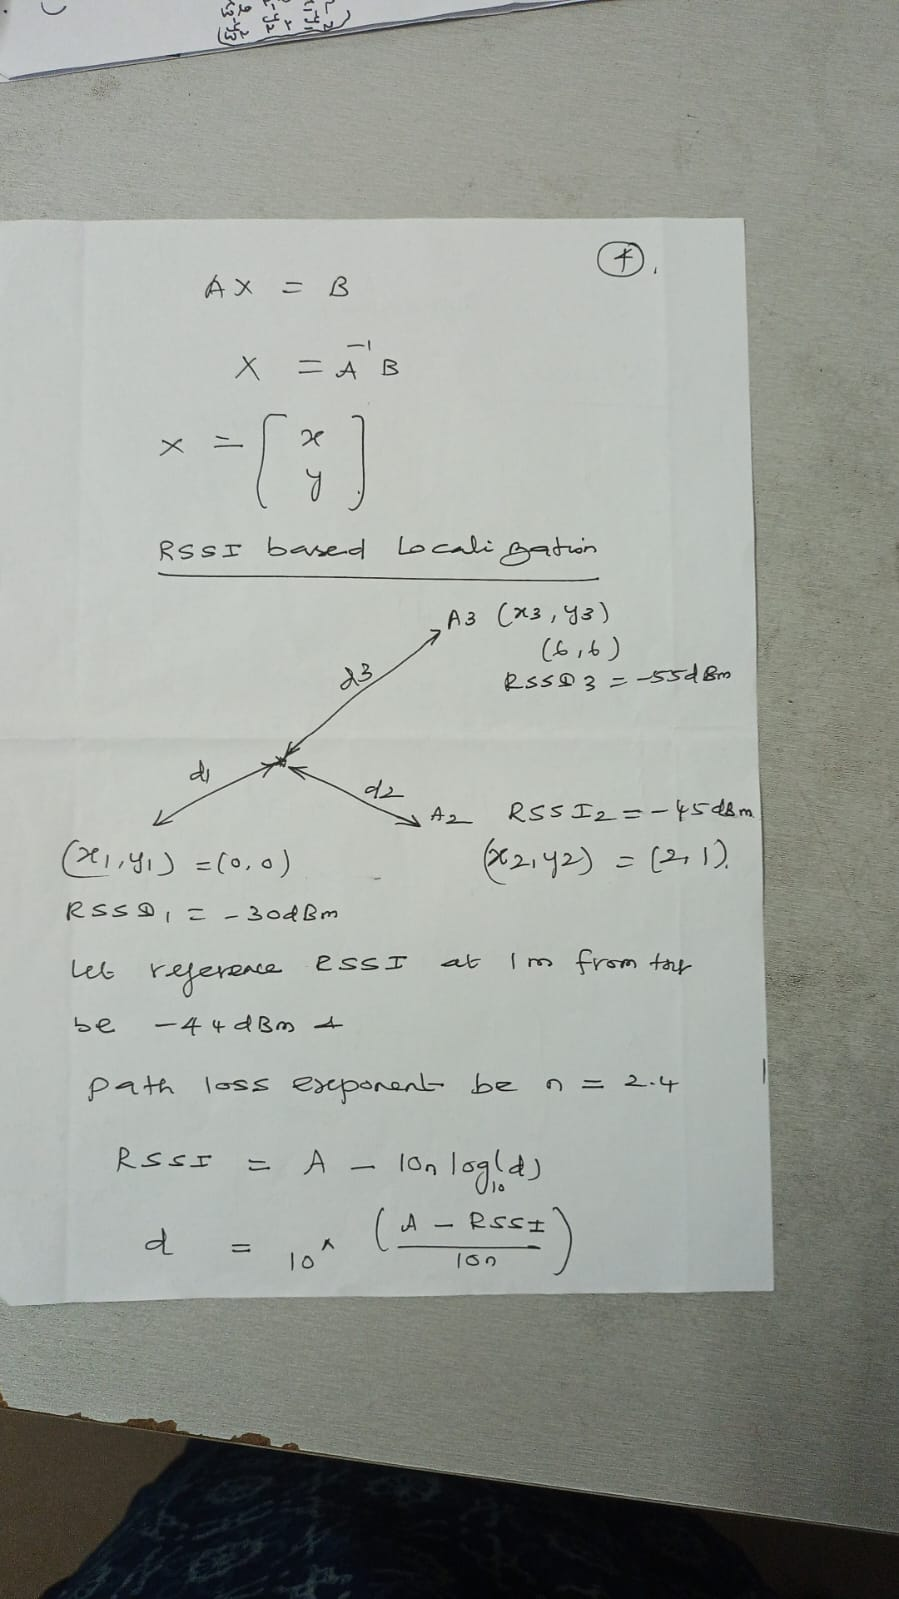 4.
AX = B
X = A⁻¹ B
X = [x
y]
RSSI based Localization
A3 (x3, y3)
(6,6)
RSSI3 = -55dBm
d3
d1
d2
A2 RSSI2 = -45dBm
(x1, y1) = (0, 0)
(x2, y2) = (2, 1).
RSSI1 = -30dBm
Let reference RSSI at 1m from
be -44dBm &
path loss exponent be n = 2.4
RSSI = A - 10n log₁₀(d)
d = 10^ (A - RSSI
10n)